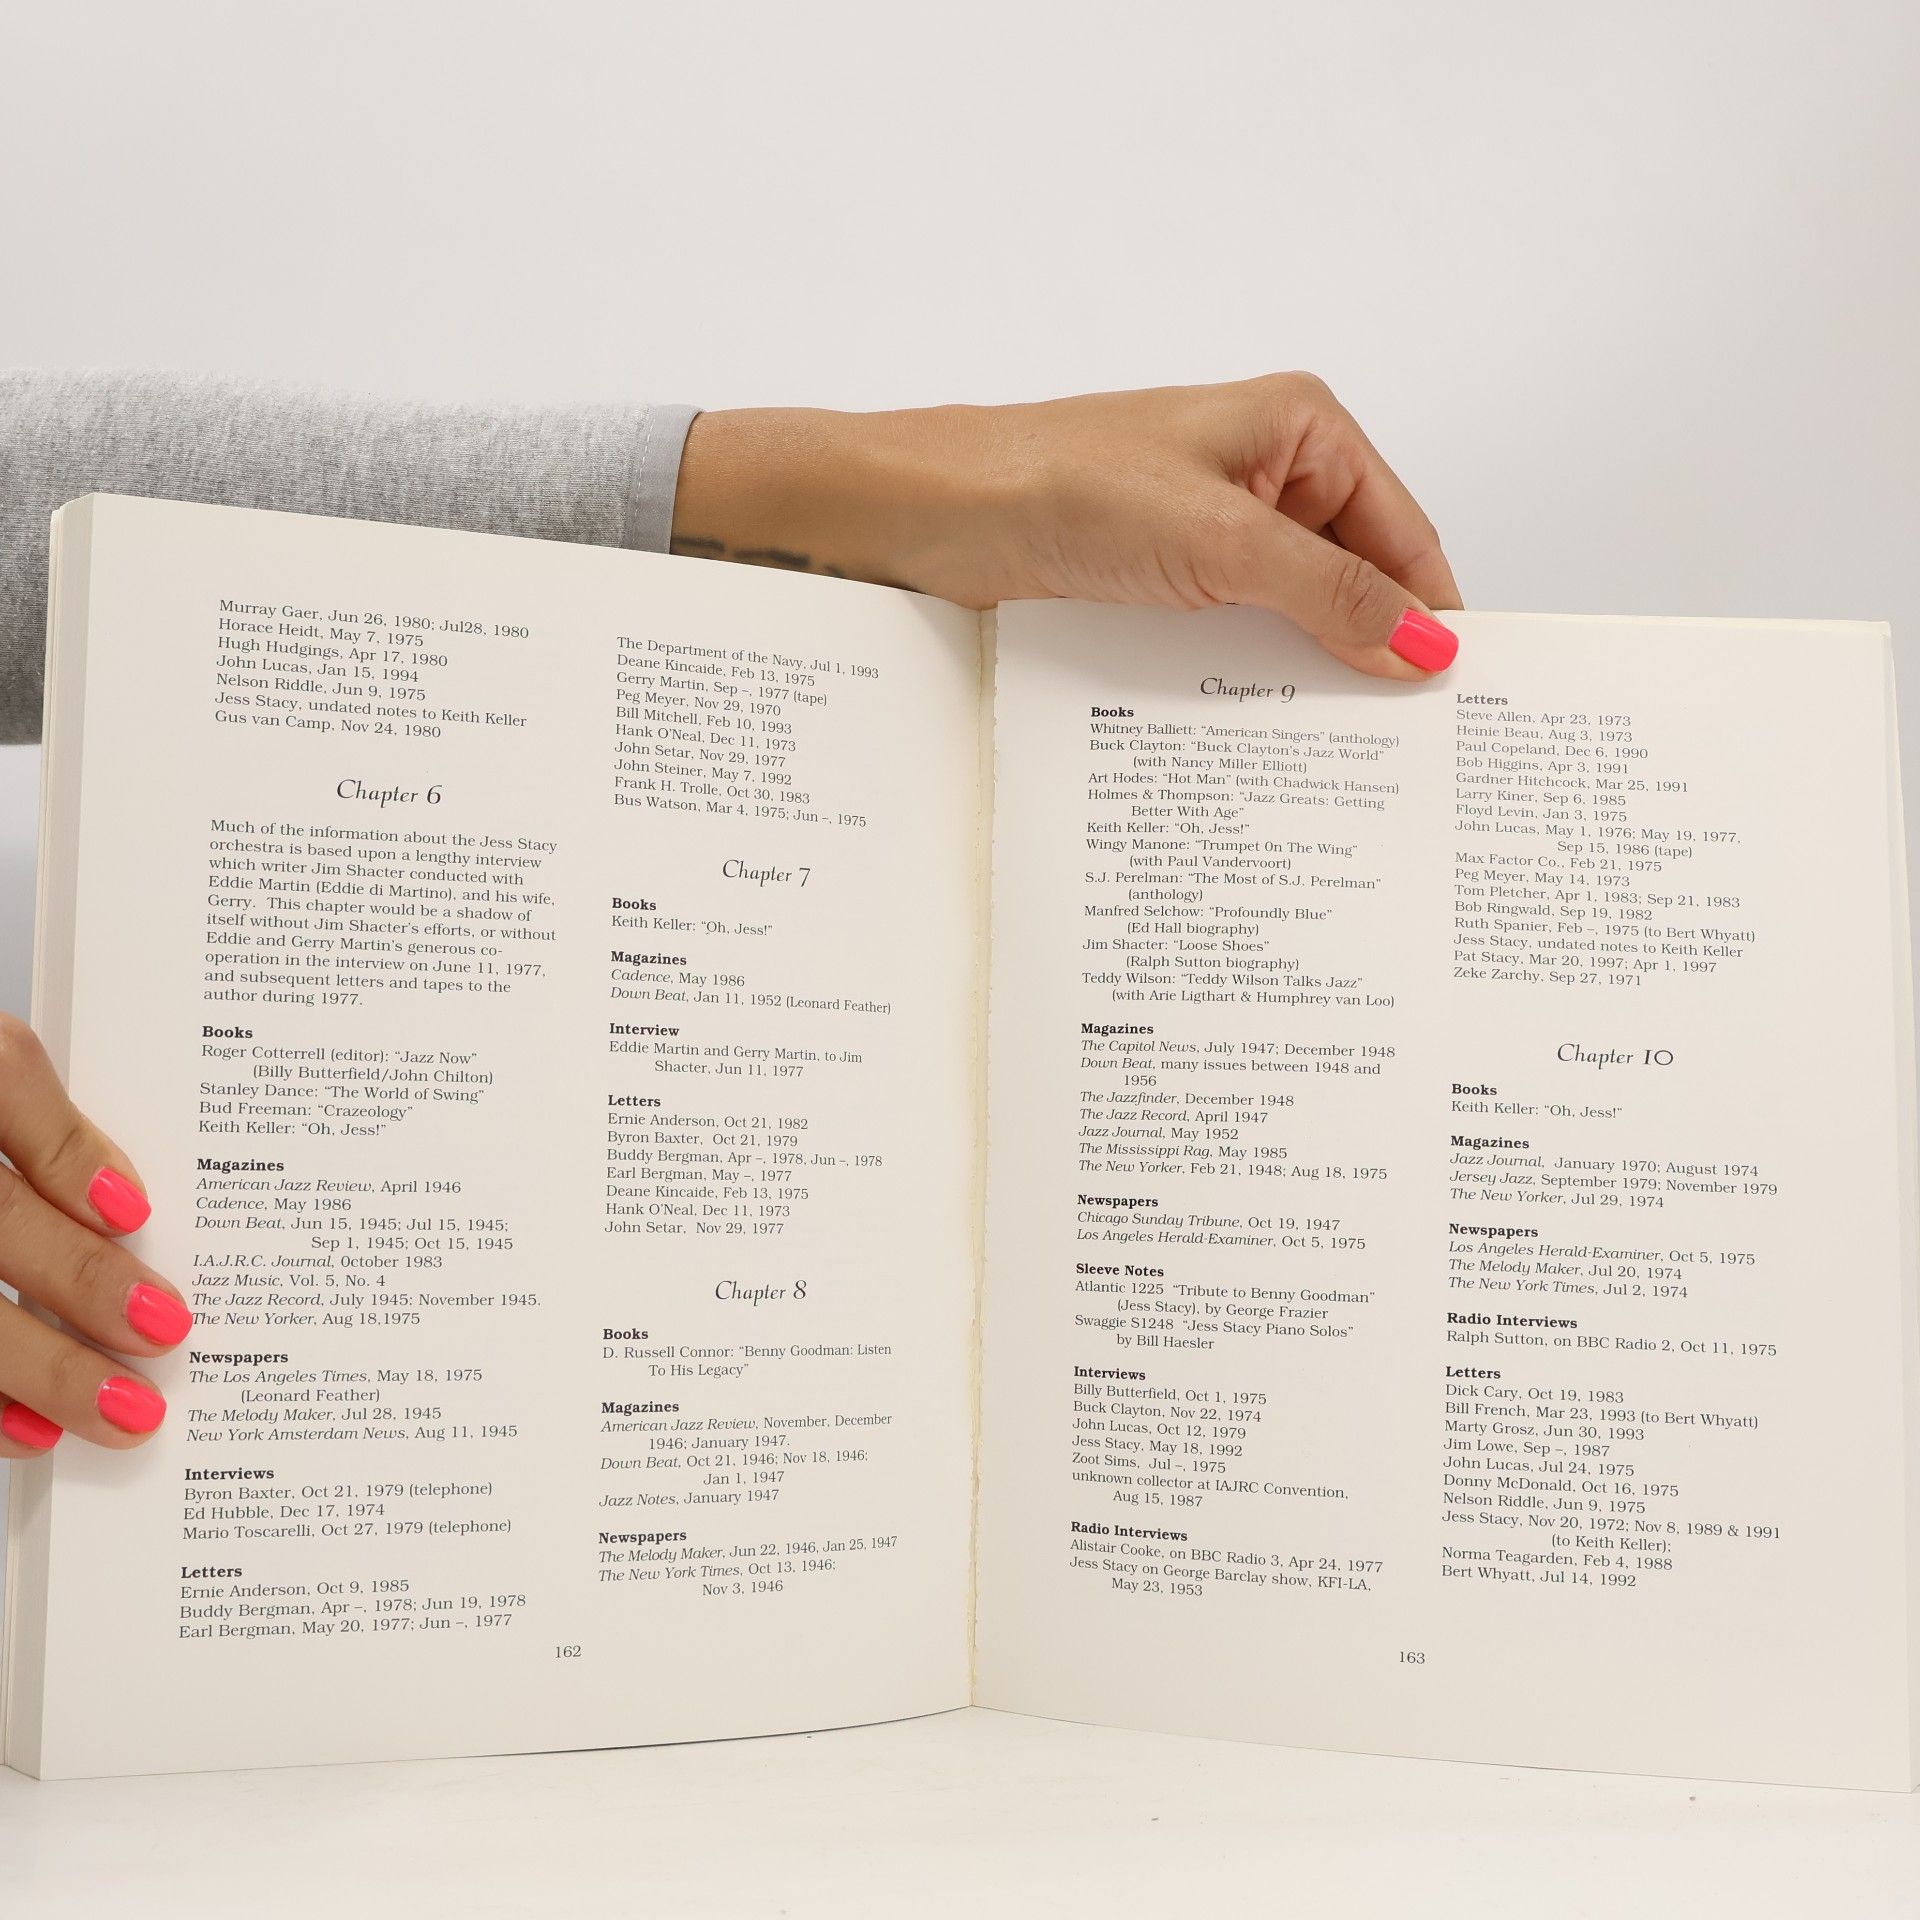 Murray Gaer, Jun 26, 1980; Jul28, 1980
Horace Heidt, May 7, 1975
Hugh Hudgings, Apr 17, 1980
John Lucas, Jan 15, 1994
Nelson Riddle, Jun 9, 1975
Jess Stacy, undated notes to Keith Keller
Gus van Camp, Nov 24, 1980
Chapter 6
Much of the information about the Jess Stacy
orchestra is based upon a lengthy interview
which writer Jim Shacter conducted with
Eddie Martin (Eddie di Martino), and his wife,
Gerry. This chapter would be a shadow of
itself without Jim Shacter's efforts, or without
Eddie and Gerry Martin's generous co-
operation in the interview on June 11, 1977,
and subsequent letters and tapes to the
author during 1977.
Books
Roger Cotterrell (editor): "Jazz Now"
(Billy Butterfield/John Chilton)
Stanley Dance: "The World of Swing"
Bud Freeman: "Crazeology"
Keith Keller: "Oh, Jess!"
Magazines
American Jazz Review, April 1946
Cadence, May 1986
Down Beat, Jun 15, 1945; Jul 15, 1945;
Sep 1, 1945; Oct 15, 1945
I.A.J.R.C. Journal, October 1983
Jazz Music, Vol. 5, No. 4
The Jazz Record, July 1945: November 1945.
The New Yorker, Aug 18,1975
Newspapers
The Los Angeles Times, May 18, 1975
(Leonard Feather)
The Melody Maker, Jul 28, 1945
New York Amsterdam News, Aug 11, 1945
Interviews
Byron Baxter, Oct 21, 1979 (telephone)
Ed Hubble, Dec 17, 1974
Mario Toscarelli, Oct 27, 1979 (telephone)
Letters
Ernie Anderson, Oct 9, 1985
Buddy Bergman, Apr –, 1978; Jun 19, 1978
Earl Bergman, May 20, 1977; Jun –, 1977
The Department of the Navy, Jul 1, 1993
Deane Kincaide, Feb 13, 1975
Gerry Martin, Sep –, 1977 (tape)
Peg Meyer, Nov 29, 1970
Bill Mitchell, Feb 10, 1993
Hank O'Neal, Dec 11, 1973
John Setar, Nov 29, 1977
John Steiner, May 7, 1992
Frank H. Trolle, Oct 30, 1983
Bus Watson, Mar 4, 1975; Jun –, 1975
Chapter 7
Books
Keith Keller: "Oh, Jess!"
Magazines
Cadence, May 1986
Down Beat, Jan 11, 1952 (Leonard Feather)
Interview
Eddie Martin and Gerry Martin, to Jim
Shacter, Jun 11, 1977
Letters
Ernie Anderson, Oct 21, 1982
Byron Baxter, Oct 21, 1979
Buddy Bergman, Apr –, 1978, Jun –, 1978
Earl Bergman, May –, 1977
Deane Kincaide, Feb 13, 1975
Hank O'Neal, Dec 11, 1973
John Setar, Nov 29, 1977
Chapter 8
Books
D. Russell Connor: "Benny Goodman: Listen
To His Legacy"
Magazines
American Jazz Review, November, December
1946; January 1947.
Down Beat, Oct 21, 1946; Nov 18, 1946;
Jan 1, 1947
Jazz Notes, January 1947
Newspapers
The Melody Maker, Jun 22, 1946, Jan 25, 1947
The New York Times, Oct 13, 1946;
Nov 3, 1946
162
Chapter 9
Books
Whitney Balliett: "American Singers" (anthology)
Buck Clayton: "Buck Clayton's Jazz World"
(with Nancy Miller Elliott)
Art Hodes: "Hot Man" (with Chadwick Hansen)
Holmes & Thompson: "Jazz Greats: Getting
Better With Age"
Keith Keller: "Oh, Jess!"
Wingy Manone: "Trumpet 0n The Wing"
(with Paul Vandervoort)
S.J. Perelman: "The Most of S.J. Perelman"
(anthology)
Manfred Selchow: "Profoundly Blue"
(Ed Hall biography)
Jim Shacter: "Loose Shoes"
(Ralph Sutton biography)
Teddy Wilson: "Teddy Wilson Talks Jazz"
(with Arie Ligthart & Humphrey van Loo)
Magazines
The Capitol News, July 1947; December 1948
Down Beat, many issues between 1948 and
1956
The Jazzfinder, December 1948
The Jazz Record, April 1947
Jazz Journal, May 1952
The Mississippi Rag, May 1985
The New Yorker, Feb 21, 1948; Aug 18, 1975
Newspapers
Chicago Sunday Tribune, Oct 19, 1947
Los Angeles Herald-Examiner, Oct 5, 1975
Sleeve Notes
Atlantic 1225 "Tribute to Benny Goodman"
(Jess Stacy), by George Frazier
Swaggie S1248 "Jess Stacy Piano Solos"
by Bill Haesler
Interviews
Billy Butterfield, Oct 1, 1975
Buck Clayton, Nov 22, 1974
John Lucas, Oct 12, 1979
Jess Stacy, May 18, 1992
Zoot Sims, Jul –, 1975
unknown collector at IAJRC Convention,
Aug 15, 1987
Radio Interviews
Alistair Cooke, on BBC Radio 3, Apr 24, 1977
Jess Stacy on George Barclay show, KFI-LA,
May 23, 1953
Letters
Steve Allen, Apr 23, 1973
Heinie Beau, Aug 3, 1973
Paul Copeland, Dec 6, 1990
Bob Higgins, Apr 3, 1991
Gardner Hitchcock, Mar 25, 1991
Larry Kiner, Sep 6, 1985
Floyd Levin, Jan 3, 1975
John Lucas, May 1, 1976; May 19, 1977,
Sep 15, 1986 (tape)
Max Factor Co., Feb 21, 1975
Peg Meyer, May 14, 1973
Tom Pletcher, Apr 1, 1983; Sep 21, 1983
Bob Ringwald, Sep 19, 1982
Ruth Spanier, Feb –, 1975 (to Bert Whyatt)
Jess Stacy, undated notes to Keith Keller
Pat Stacy, Mar 20, 1997; Apr 1, 1997
Zeke Zarchy, Sep 27, 1971
Chapter 10
Books
Keith Keller: "Oh, Jess!"
Magazines
Jazz Journal, January 1970; August 1974
Jersey Jazz, September 1979; November 1979
The New Yorker, Jul 29, 1974
Newspapers
Los Angeles Herald-Examiner, Oct 5, 1975
The Melody Maker, Jul 20, 1974
The New York Times, Jul 2, 1974
Radio Interviews
Ralph Sutton, on BBC Radio 2, Oct 11, 1975
Letters
Dick Cary, Oct 19, 1983
Bill French, Mar 23, 1993 (to Bert Whyatt)
Marty Grosz, Jun 30, 1993
Jim Lowe, Sep –, 1987
John Lucas, Jul 24, 1975
Donny McDonald, Oct 16, 1975
Nelson Riddle, Jun 9, 1975
Jess Stacy, Nov 20, 1972; Nov 8, 1989 & 1991
(to Keith Keller);
Norma Teagarden, Feb 4, 1988
Bert Whyatt, Jul 14, 1992
163